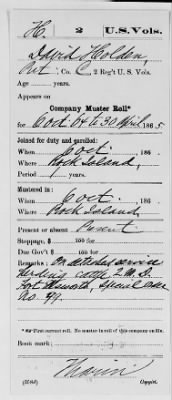 H 2 U.S. Vols.
David Holden
Pvt, Co. C, 2 Reg't U. S. Vols.
Age years.
Appears on
Company Muster Roll*
for 6 Oct 64 to 30 April, 1865
Joined for duty and enrolled:
When 6 Oct, 186
Where Rock Island
Period 1 years.
Mustered in:
When 6 Oct, 186
Where Rock Island
Present or absent Present
Stoppage, $ 100 for
Due Gov't $ 100 for
Remarks: On detached service
herding cattle 2 M. D.
Fort Ellsworth, Special order
No. 49.
*First current roll. No muster in roll of this company on file.
Book mark:
(358) Copyist.